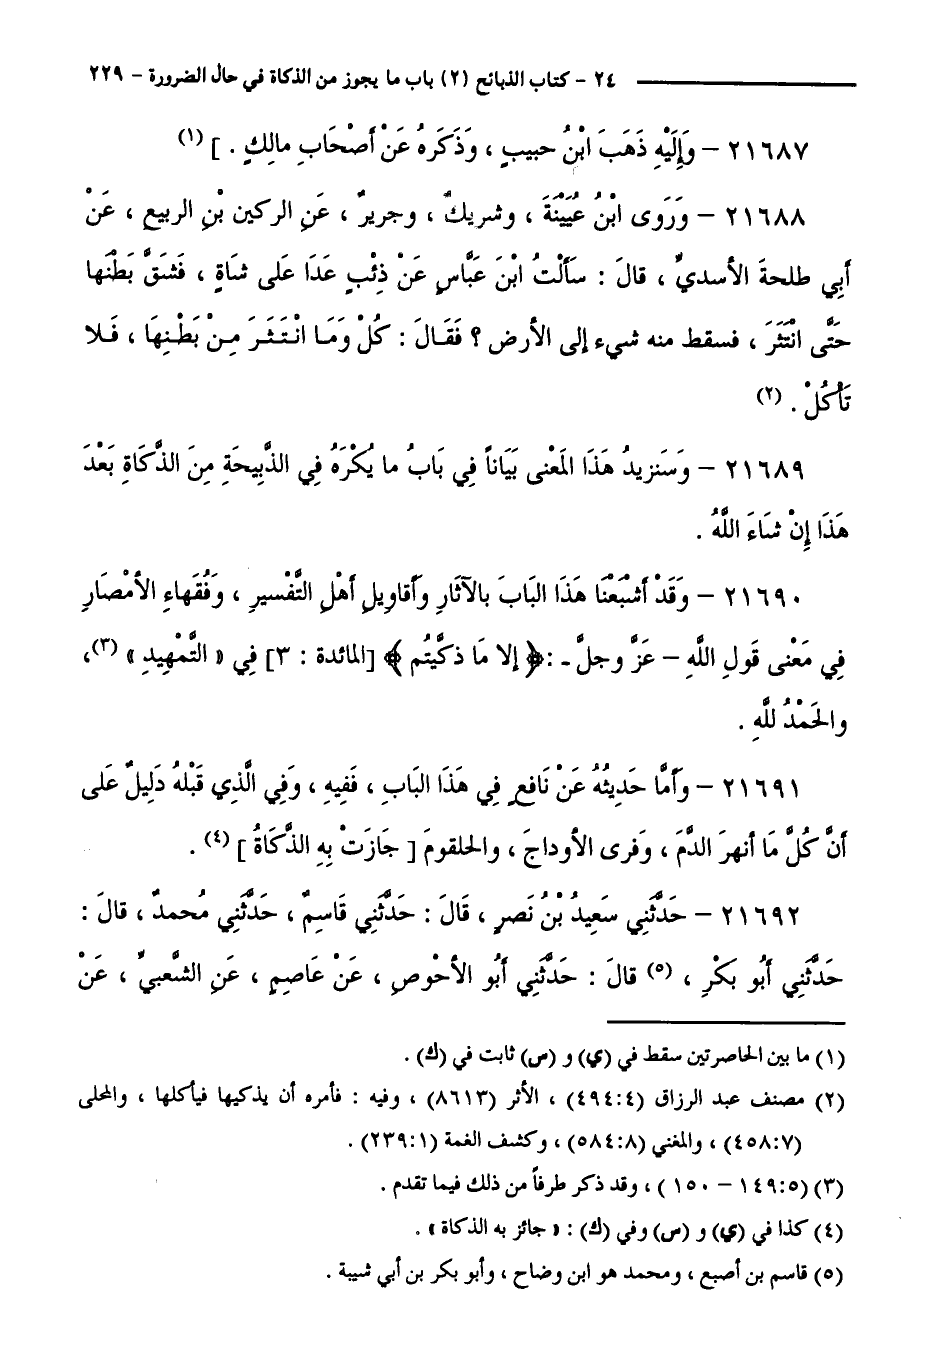 ٢٤ - كتاب الذبائح (٢) باب ما يجوز من الذكاة في حال الضرورة - ٢٢٩
٢١٦٨٧ - وَإِلَيْهِ ذَهَبَ ابْنُ حبيبٍ ، وَذَكَرَهُ عَنْ أَصْحَابِ مالِكٍ . ] (١)
٢١٦٨٨ - وَرَوى ابْنُ عُيَيْنَةَ ، وشريكٌ ، وجريرٌ ، عَنِ الركين بْنِ الربيع ، عَنْ
أَبِي طلحةَ الأسديِّ ، قالَ : سَأَلْتُ ابْنَ عَبَّاسٍ عَنْ ذِئْبٍ عَدَا عَلى شاةٍ ، فَشَقَّ بَطْنَها
حَتَّى انْتَثَرَ ، فسقط منه شيء إلى الأرض ؟ فَقَالَ : كُلْ وَمَا انْتَثَرَ مِنْ بَطْنِهَا ، فَلا
تَأْكُلْ . (٢)
٢١٦٨٩ - وَسَنزيدُ هَذَا المَعْنى بَيَاناً فِي بَابُ ما يُكْرَهُ فِي الذَّبِيحَةِ مِنَ الذَّكَاةِ بَعْدَ
هَذَا إِنْ شَاءَ اللَّهُ .
٢١٦٩٠ - وَقَدْ أَشْبَعْنَا هَذَا البَابَ بالآثَارِ وأَقاويلِ أهْلِ التَّفْسيرِ ، وَفُقَهاءِ الأمْصَارِ
فِي مَعْنى قَولِ اللَّهِ - عَزَّ وجلَّ - : ﴿ إلا مَا ذكَّيْتُم ﴾ [المائدة : ٣] فِي « التَّمْهِيدِ » (٣)،
والحَمْدُ للَّهِ .
٢١٦٩١ - وَأَمَّا حَدِيثُهُ عَنْ نَافعٍ فِي هَذَا البَابِ ، فَفِيهِ ، وَفِي الَّذِي قَبْلَهُ دَلِيلٌ عَلى
أَنَّ كُلَّ مَا أنهرَ الدَّمَ ، وَفرى الأوداجَ ، والحلقومَ [ جَازَتْ بِهِ الذَّكَاةُ ] (٤) .
٢١٦٩٢ - حَدَّثَنِي سَعِيدُ بْنُ نَصرٍ ، قَالَ : حَدَّثَنِي قَاسِمٌ ، حَدَّثَنِي مُحمدٌ ، قالَ :
حَدَّثَنِي أَبُو بَكْرٍ ، (٥) قالَ : حَدَّثَنِي أَبُو الأحْوصِ ، عَنْ عَاصِمٍ ، عَنِ الشَّعبيِّ ، عَنْ
(١) ما بين الحاصرتين سقط في (ي) و (س) ثابت في (ك) .
(٢) مصنف عبد الرزاق (٤:٤٩٤) ، الأثر (٨٦١٣) ، وفيه : فأمره أن يذكيها فيأكلها ، والمحلى
(٧:٤٥٨) ، والمغني (٨:٥٨٤) ، وكشف الغمة (١:٢٣٩) .
(٣) (٥:١٤٩ - ١٥٠ ) ، وقد ذكر طرفاً من ذلك فيما تقدم .
(٤) كذا في (ي) و (س) وفي (ك) : « جائز به الذكاة » .
(٥) قاسم بن أصبع ، ومحمد هو ابن وضاح ، وأبو بكر بن أبي شيبة .